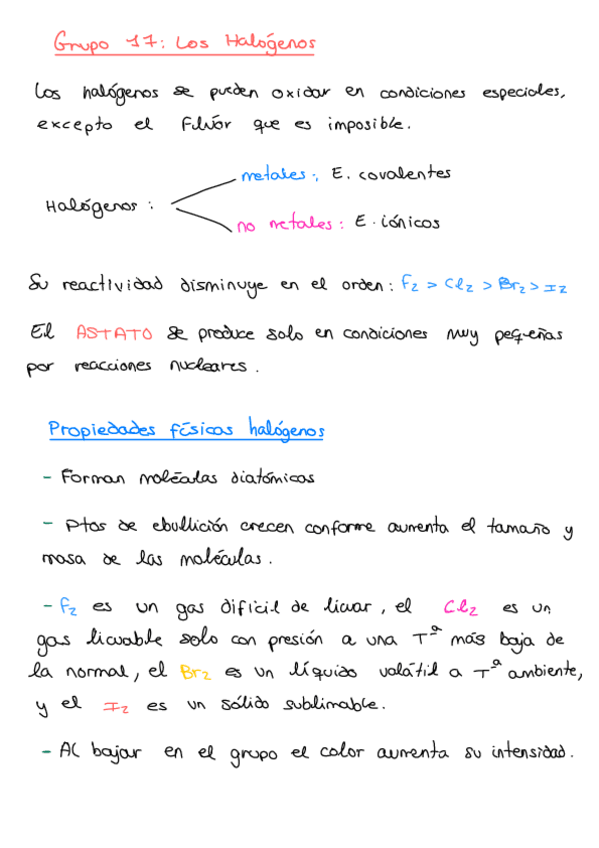 Grupo 17: Los Halógenos
Los halógenos se pueden oxidar en condiciones especiales,
excepto el Flúor que es imposible.
metales: E. covalentes
Halógenos:
no metales: E. iónicos
Su reactividad disminuye en el orden: F2 > Cl2 > Br2 > I2
El ASTATO se produce solo en condiciones muy peqeñas
por reacciones nucleares.
Propiedades físicas halógenos
- Forman moléculas diatómicas
- Ptos de ebullición crecen conforme aumenta el tamaño y
masa de las moléculas.
- F2 es un gas difícil de licuar, el Cl2 es un
gas licuable solo con presión a una Tª más baja de
la normal, el Br2 es un líquido volátil a Tª ambiente,
y el I2 es un sólido sublimable.
- Al bajar en el grupo el color aumenta su intensidad.